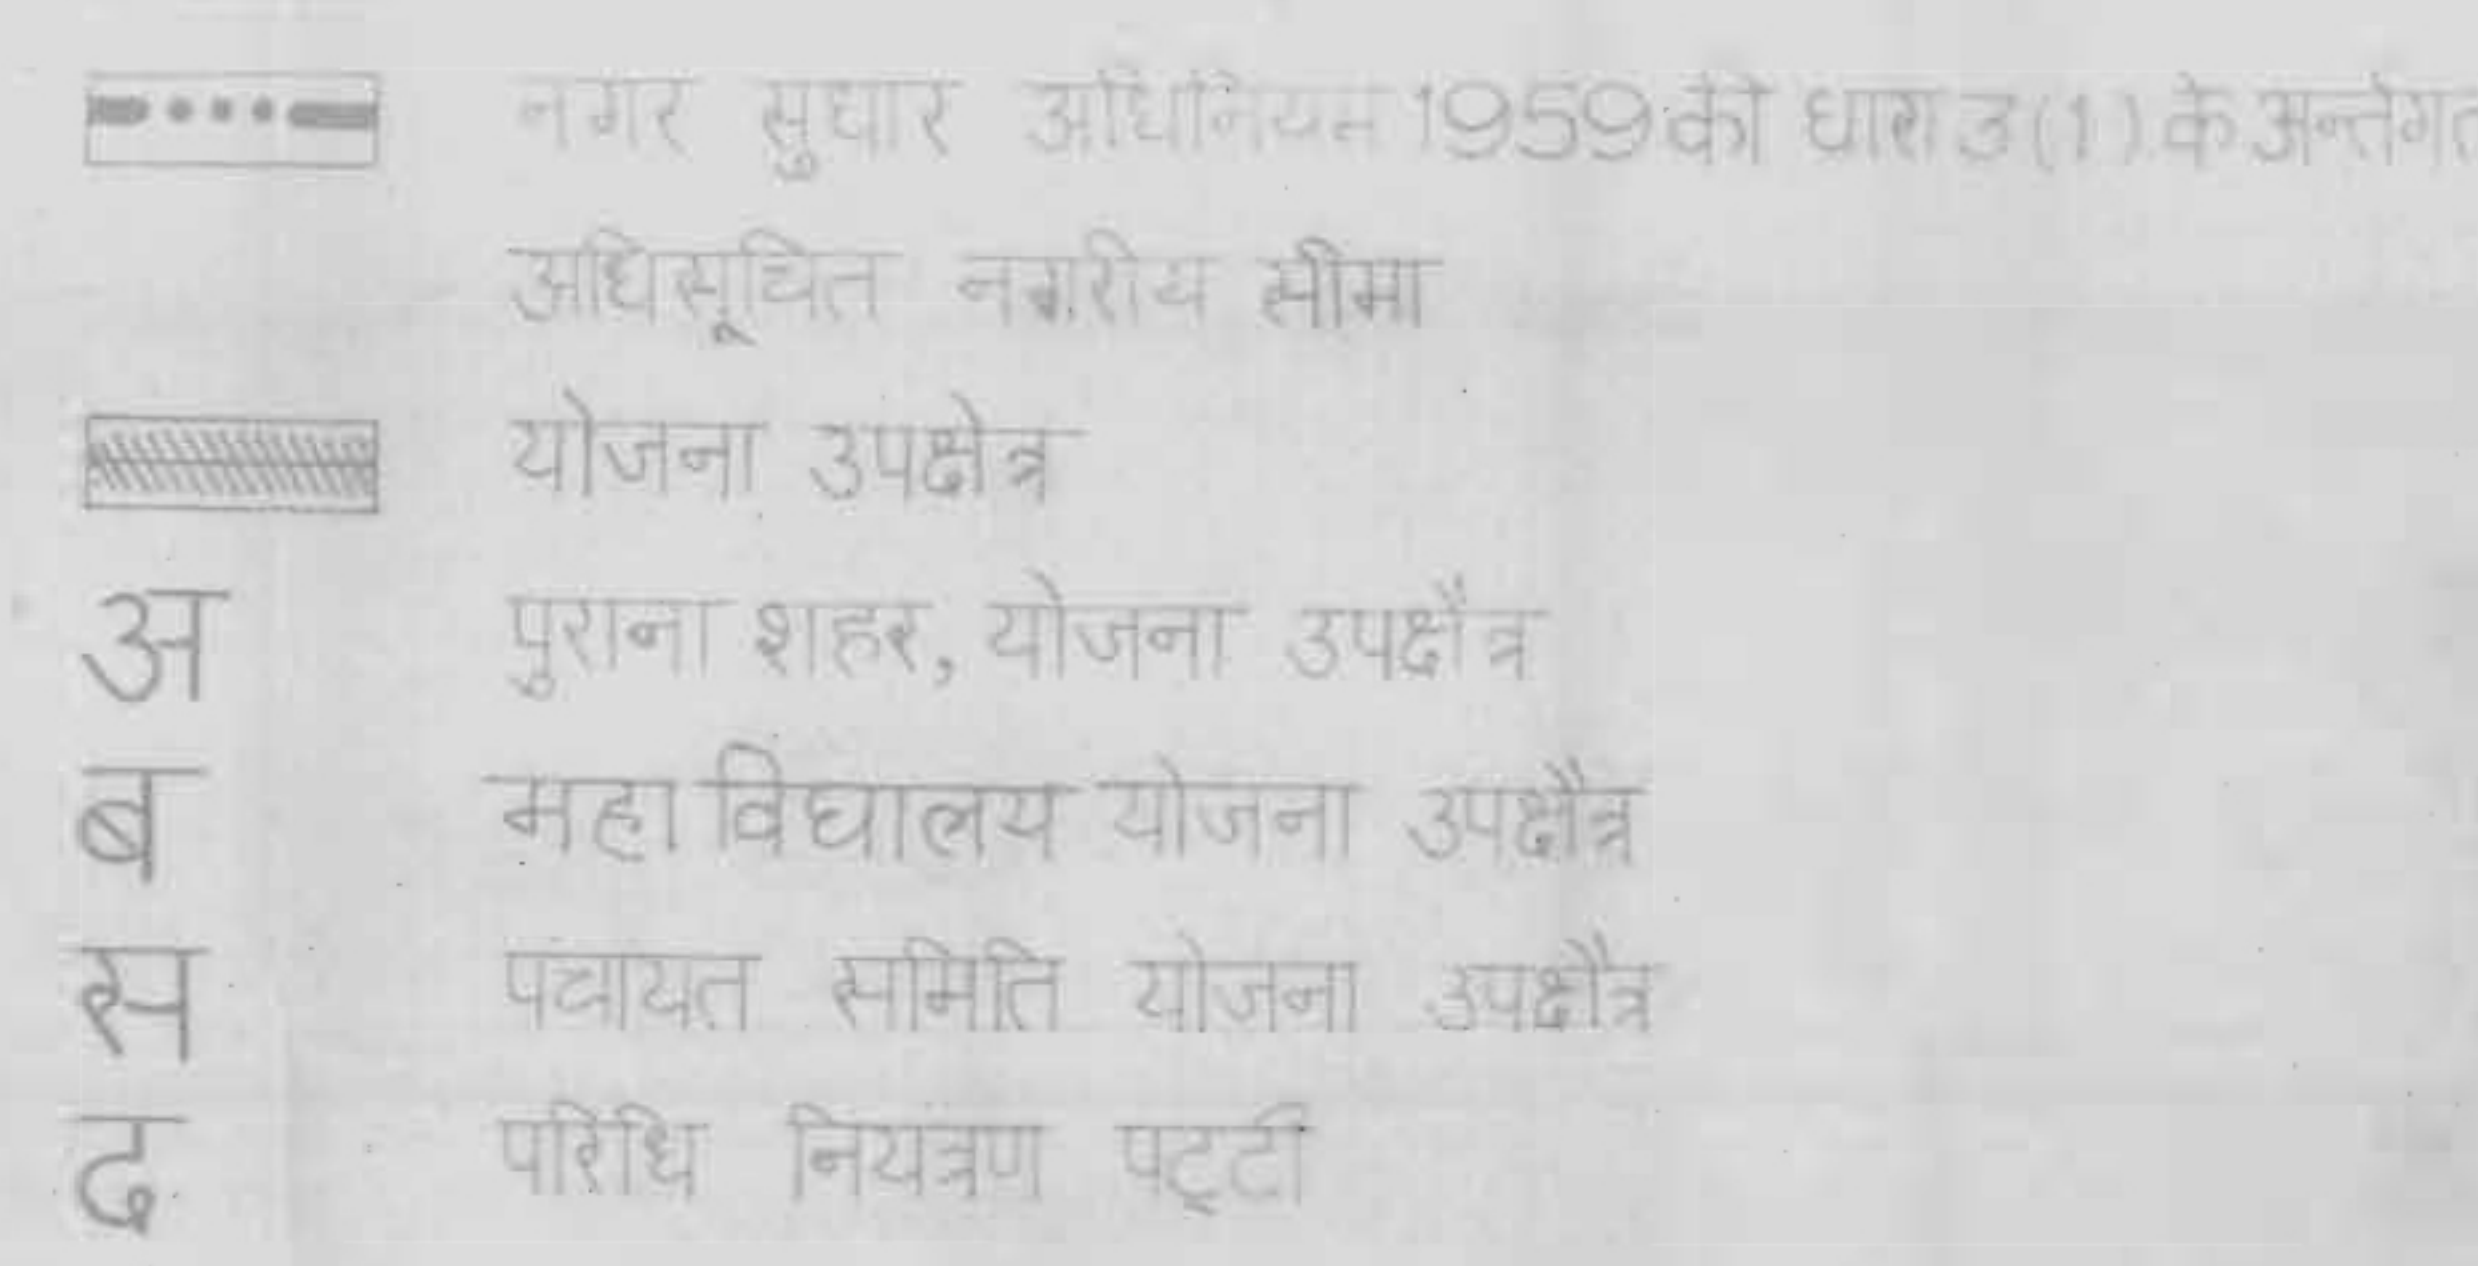 नगर सुधार अधिनियम 1959 की धारा 3 (1) के अर्न्तगत
अधिसूचित नगरीय सीमा
योजना उपक्षेत्र
अ पुराना शहर, योजना उपक्षैत्र
ब महा विद्यालय योजना उपक्षैत्र
स पचायत समिति योजना उपक्षैत्र
द परिधि नियत्रण पट्टी